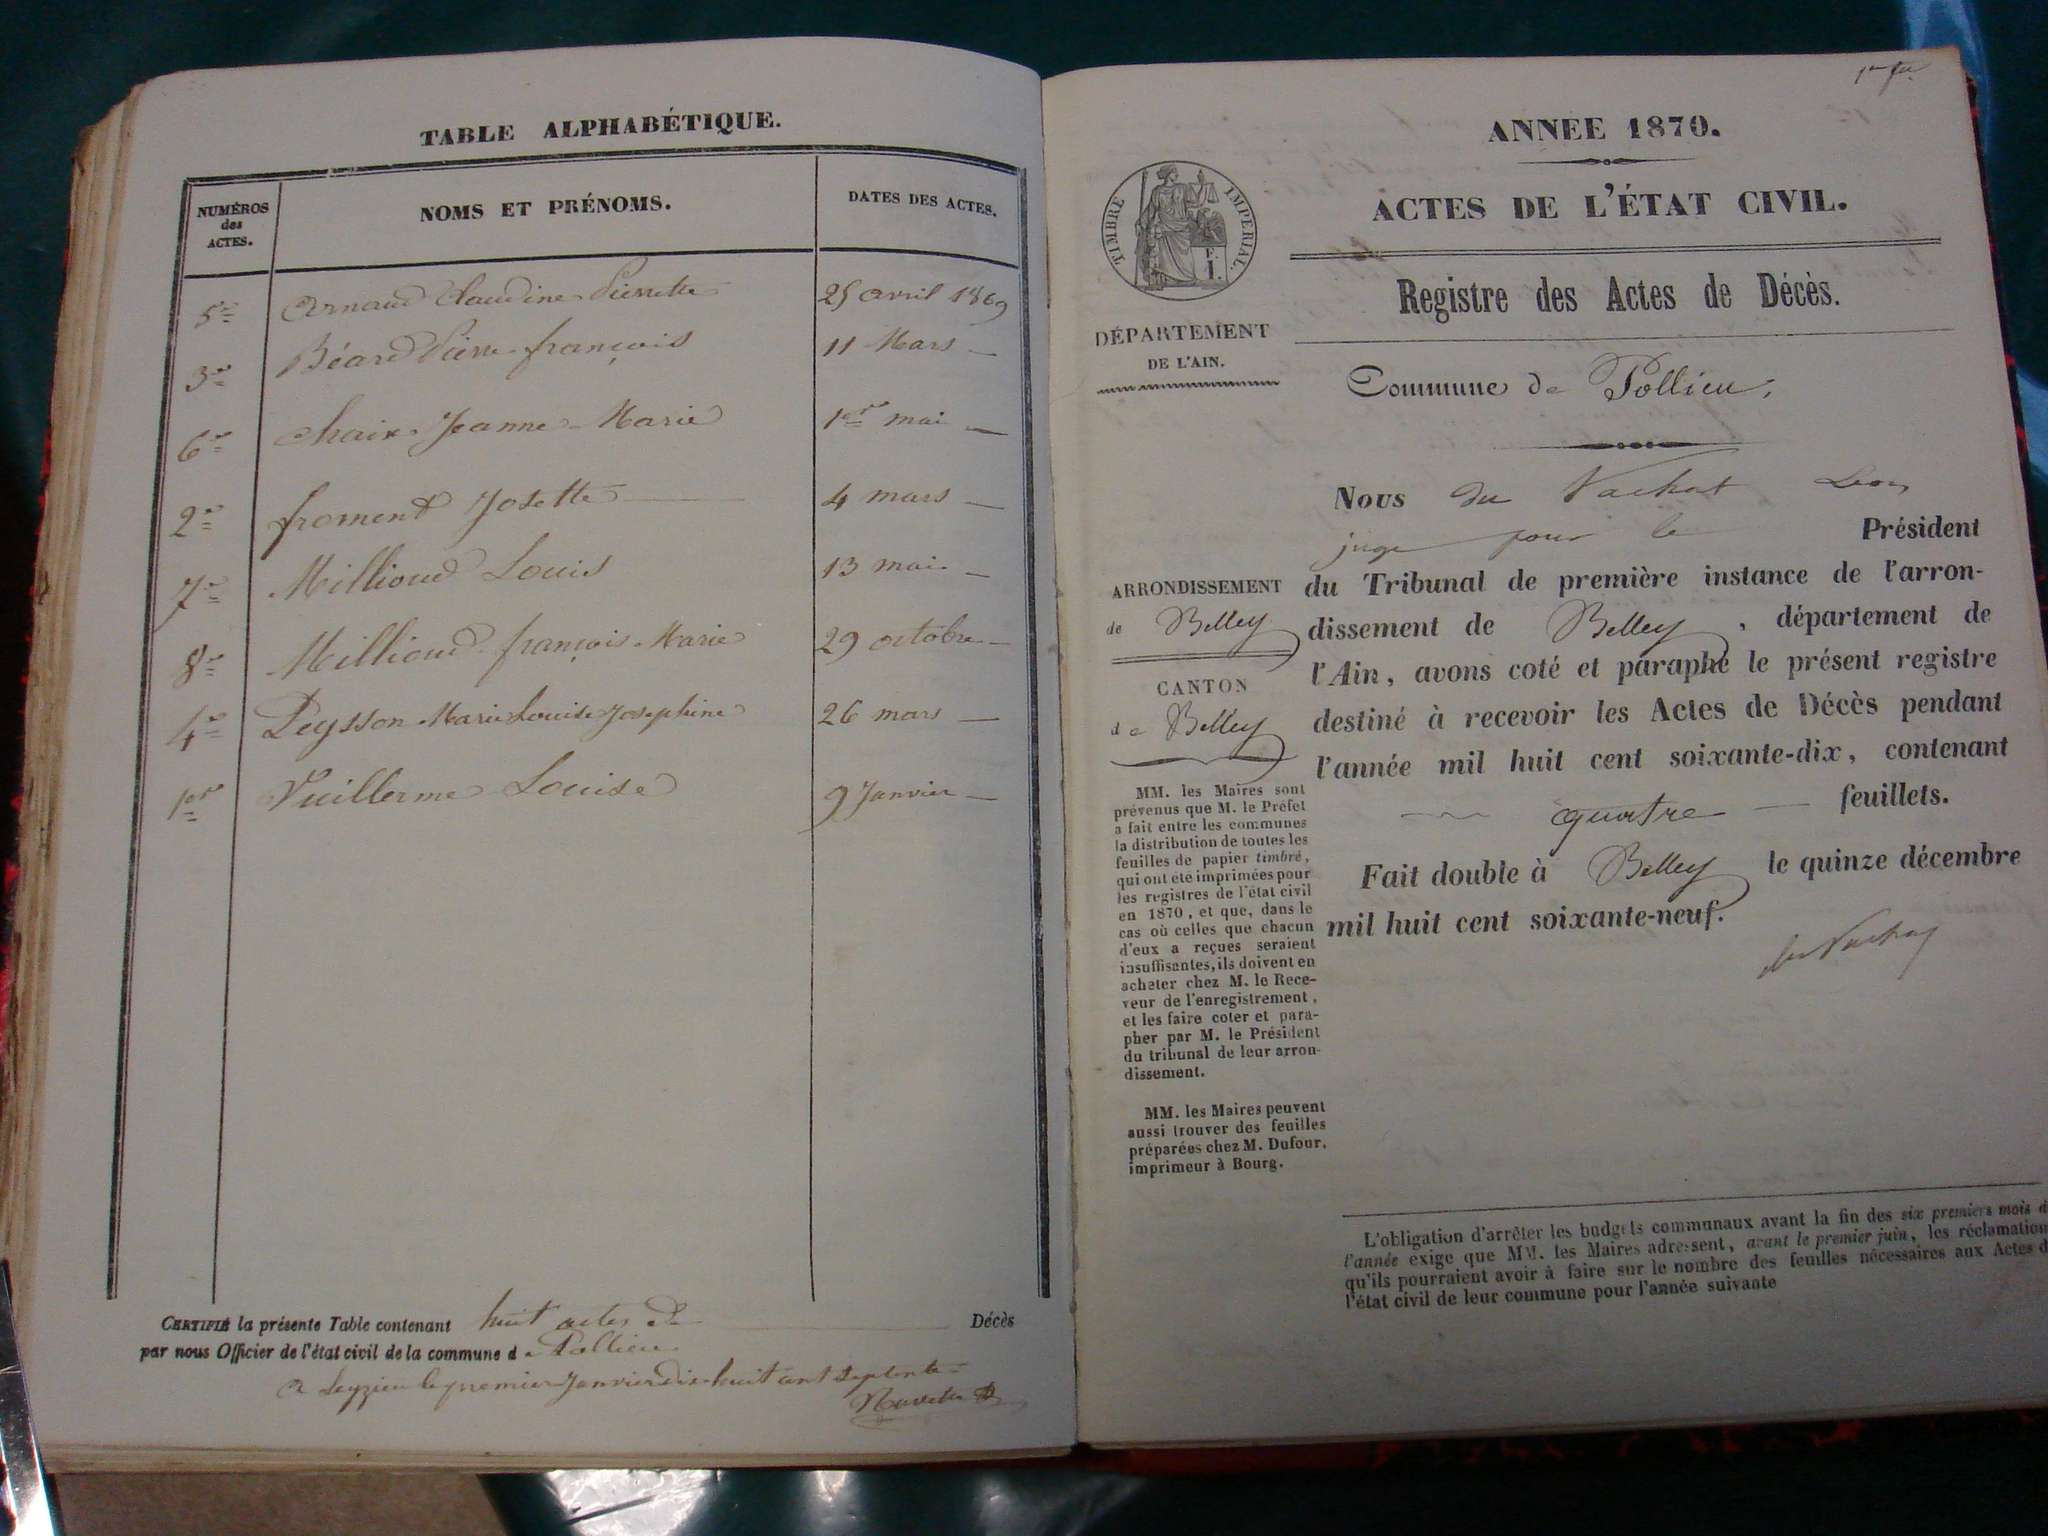 TABLE ALPHABÉTIQUE.
NUMÉROS des ACTES.
NOMS ET PRÉNOMS.
DATES DES ACTES.
5e Arnaud Claudine Pierrette 25 avril 1869
3e Béard Pierre françois 11 Mars —
6e Chaix Jeanne-Marie 1er mai —
2e froment Josette 4 mars —
7e Millioud Louis 13 mai —
8e Millioud françois-Marie 29 octobre —
4e Peysson Marie Louise Josephine 26 mars —
1er Vuillerme Louise 9 Janvier —
CERTIFIÉ la présente Table contenant huit actes de Décès
par nous Officier de l'état civil de la commune de Pollieu
a Leyzieu le premier Janvier dix-huit cent septente
ANNÉE 1870.
ACTES DE L'ÉTAT CIVIL.
TIMBRE IMPÉRIAL.
Registre des Actes de Décès.
DÉPARTEMENT
DE L'AIN.
Commune de Pollieu,
Nous du Vachat Léon
juge pour le Président
du Tribunal de première instance de l'arron-
dissement de Belley, département de
l'Ain, avons coté et paraphé le présent registre
destiné à recevoir les Actes de Décès pendant
l'année mil huit cent soixante-dix, contenant
quatre — feuillets.
Fait double à Belley le quinze décembre
mil huit cent soixante-neuf.
du Vachat
ARRONDISSEMENT
de Belley
CANTON
de Belley
MM. les Maires sont
prévenus que M. le Préfet
a fait entre les communes
la distribution de toutes les
feuilles de papier timbré,
qui ont été imprimées pour
les registres de l'état civil
en 1870, et que, dans le
cas où celles que chacun
d'eux a reçues seraient
insuffisantes, ils doivent en
acheter chez M. le Rece-
veur de l'enregistrement,
et les faire coter et para-
pher par M. le Président
du tribunal de leur arron-
dissement.
MM. les Maires peuvent
aussi trouver des feuilles
préparées chez M. Dufour,
imprimeur à Bourg.
L'obligation d'arrêter les budgets communaux avant la fin des six premiers mois d
l'année exige que MM. les Maires adressent, avant le premier juin, les réclamation
qu'ils pourraient avoir à faire sur le nombre des feuilles nécessaires aux Actes d
l'état civil de leur commune pour l'année suivante